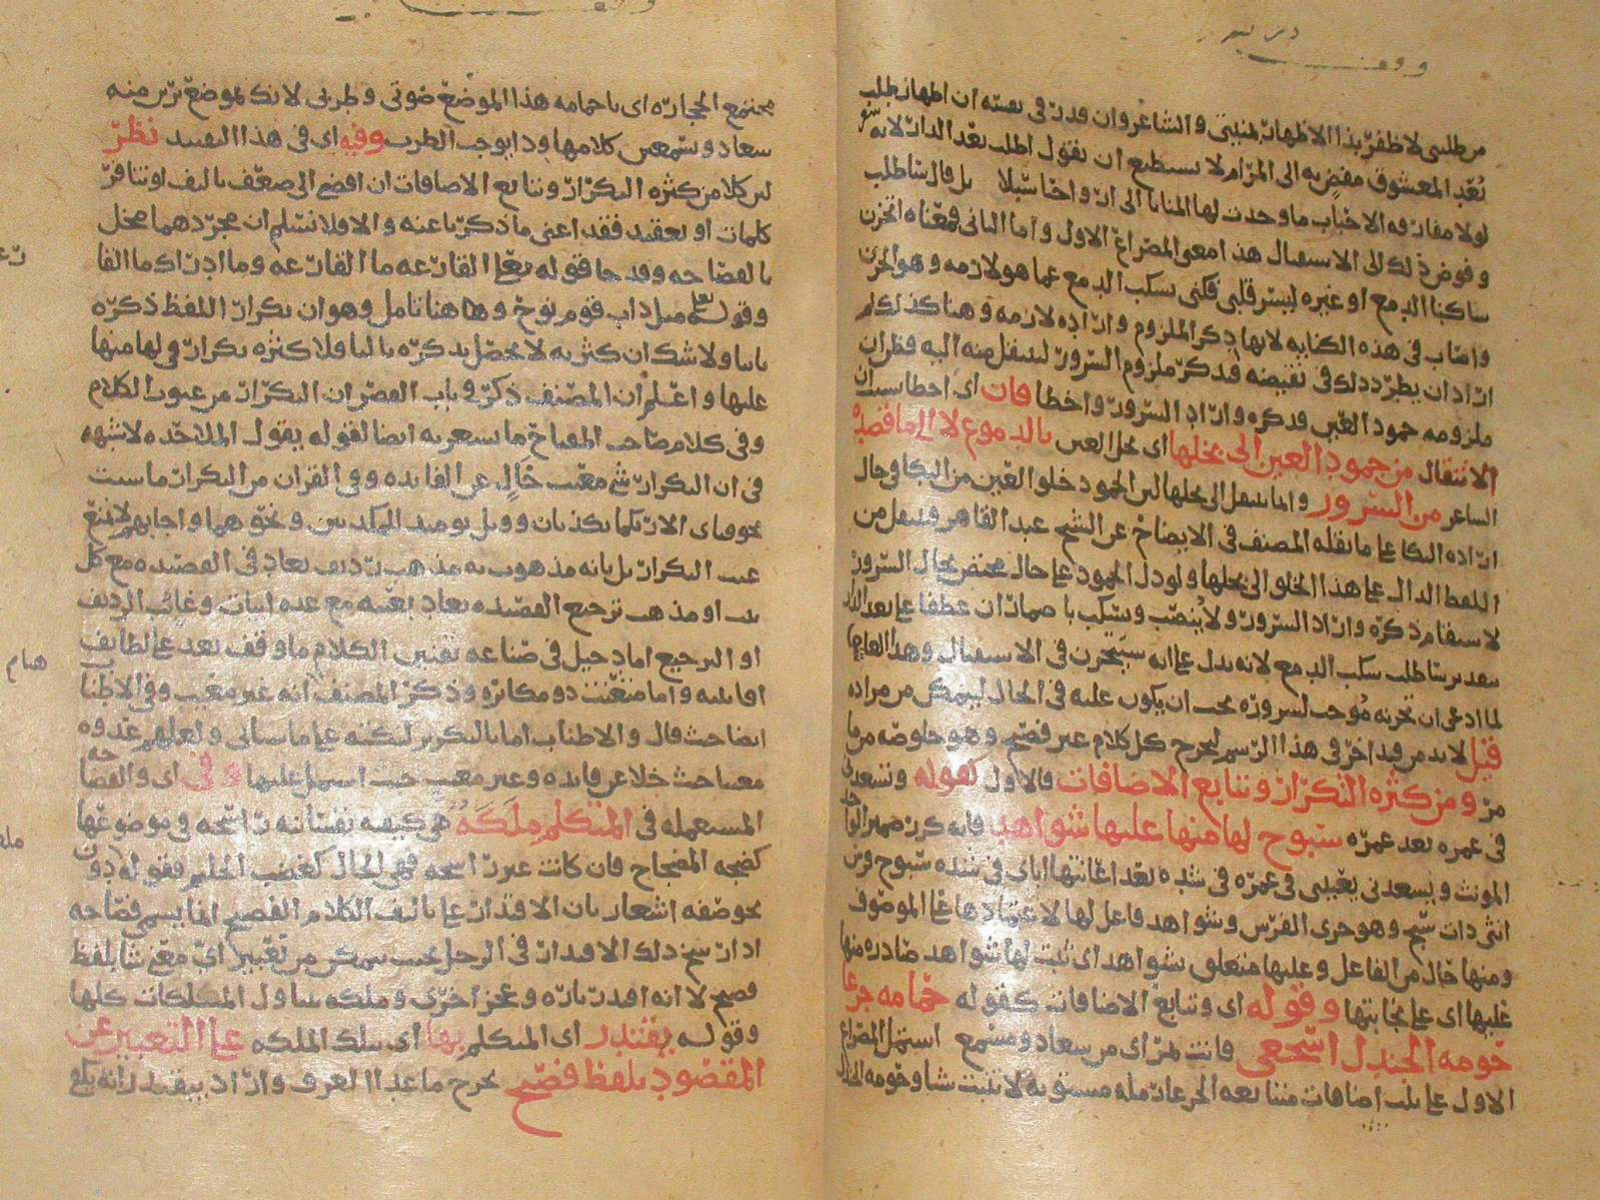 وقف
من طلبي لا ظفر بذا الاظهار بمنيتي والشاعر وان قدر في نفسه ان اظهار طلب
بُعد المعشوق مفضٍ به الى المرام لا يستطيع ان يقول اطلب بعد الدار لانه
لولا مفارقه الاحباب ما وجدت لها المنايا الى ارواحنا سبلا بل قال ساطلب
وفوض ذلك الى الاستقبال هذا معنى المصراع الاول واما الثاني فمعناه اتحزن
ساكبا الدمع او غيره ليسر قلبي فكنى بسكب الدمع عما هو لازمه وهو الحزن
واصاب في هذه الكنايه لانها ذكر الملزوم واراده لازمه وهنا كذلك لم
اراد ان يطرد ذلك في نقيضه فذكر ملزوم السرور لينتقل منه اليه فظن ان
ملزومه جمود العين فذكره واراد السرور واخطا فان اي اخطا بسبب ان
الانتقال من جمود العين الى بخلها اي بخل العين بالدموع لا الى ما قصده
الشاعر من السرور وانما ينتقل الى بخلها لان الجمود خلو العين من البكا في حال
اراده البكا على ما نقله المصنف في الايضاح عن الشيخ عبد القاهر فينتقل من
اللفظ الدال على هذا الخلو الى بخلها ولو دل الجمود على حال مختص بحال السرور
لاستقام ذكره واراد السرور ولا يُنصب وتسكب باضمار ان عطفا على بعد الدار
بتقدير ساطلب سكب الدمع لانه يدل على انه سيَحزن في الاستقبال وهذا العام
لما ادعى ان تحزنه مُوجب لسروره يجب ان يكون عليه في الحال ليتمكن من مراده
قيل لا بد من قيد اخر في هذا الرسم ليخرج كل كلام غير فصيح وهو خلوصه مما
مرّ ومن كثره التكرار وتتابع الاضافات فالاول كقوله وتسعدني
في غمره بعد غمره سبوح لها منها عليها شواهد فانه كرر ضمير الواحد
المونث ويسعدني يعينني في غمره في شده بعد اغاثتها اياي في شده سبوح فرس
انثى ذات سبح وهو جري الفرس وشواهد فاعل لها لاعتمادها على الموصوف
ومنها حال من الفاعل وعليها متعلق بشواهد اي ثبت لها شواهد صادره منها
عليها اي على نجابتها وقوله اي وتتابع الاضافات كقوله حمامه جرعا
حومه الجندل اسجعي فانت بمراى من سعاد ومسمع اشتمل المصراع
الاول على ثلث اضافات متتابعه الجرعا رمله مستويه لا تنبت شيا وحومه الجندل
مجتمع الحجاره اي يا حمامه هذا الموضع صوتي وطربي لانك بموضع ترين منه
سعاد وتسمعين كلامها وذا يوجب الطرب وفيه اي في هذا القيد نظر
لان كلا من كثره التكرار وتتابع الاضافات ان افضى الى ضعف تاليف او تنافر
كلمات او تعقيد فقد اغنى ما ذكرنا عنه والا فلا نسلم ان مجردهما مخل
بالفصاحه وقد جا قوله تعالى القارعه ما القارعه وما ادراك ما القا
وقوله مثل داب قوم نوح وهاهنا تامل وهو ان تكرار اللفظ ذكره
ثانيا ولا شك ان كثرته لا تحصل بذكره ثالثا فلا كثره تكرار في لها منها
عليها واعلم ان المصنف ذكر في باب القصر ان التكرار من عيوب الكلام
وفي كلام صاحب المفتاح ما يشعر به ايضا لقوله يقول الملاحده لا شبهه
في ان التكرار شي معيب خالٍ عن الفايده وفي القران من التكرار ما شئت
نحو فباي الا ربكما تكذبان وويل يومئذ للمكذبين ونحوهما واجابهم لا بمنع
عيب التكرار بل بانه مذهوب به مذهب رديف يعاد في القصيده مع كل
بيت او مذهب ترجيع القصيده يعاد بعينه مع عده ابيات وعائب الرديف
او الترجيع اما دخيل في صناعه تفنين الكلام ما وقف بعد على لطايف
افانينه واما متعنت ذو مكابره وذكر المصنف انه غير معيب وفي الاطنا
ايضا حيث قال والاطناب اما بالتكرير لنكته على ما سياتي ولعلهم عدوه
معيبا حيث خلا عن فايده وغير معيب حيث اشتمل عليها وفي اي والفصاحه
المستعمله في المتكلم مَلَكَه هي كيفيه نفسانيه راسخه في موضوعها
كضجه المضجاح فان كانت غير راسخه فهي الحال كغضب الحليم فقوله دون
نحو صفه اشعار بان الاقتدار على تاليف الكلام الفصيح انما يسمى فصاحه
اذا رسخ ذلك الاقتدار في الرجل بحيث يتمكن من تعبير اي معنى شا بلفظ
فصيح لا انه اقدر تاره وعجز اخرى وملكه يتناول الملكات كلها
وقوله يقتدر اي المتكلم بها اي بتلك الملكه على التعبير عن
المقصود بلفظ فصيح يخرج ما عدا المعرف واراد بيقتدر انه بلغ